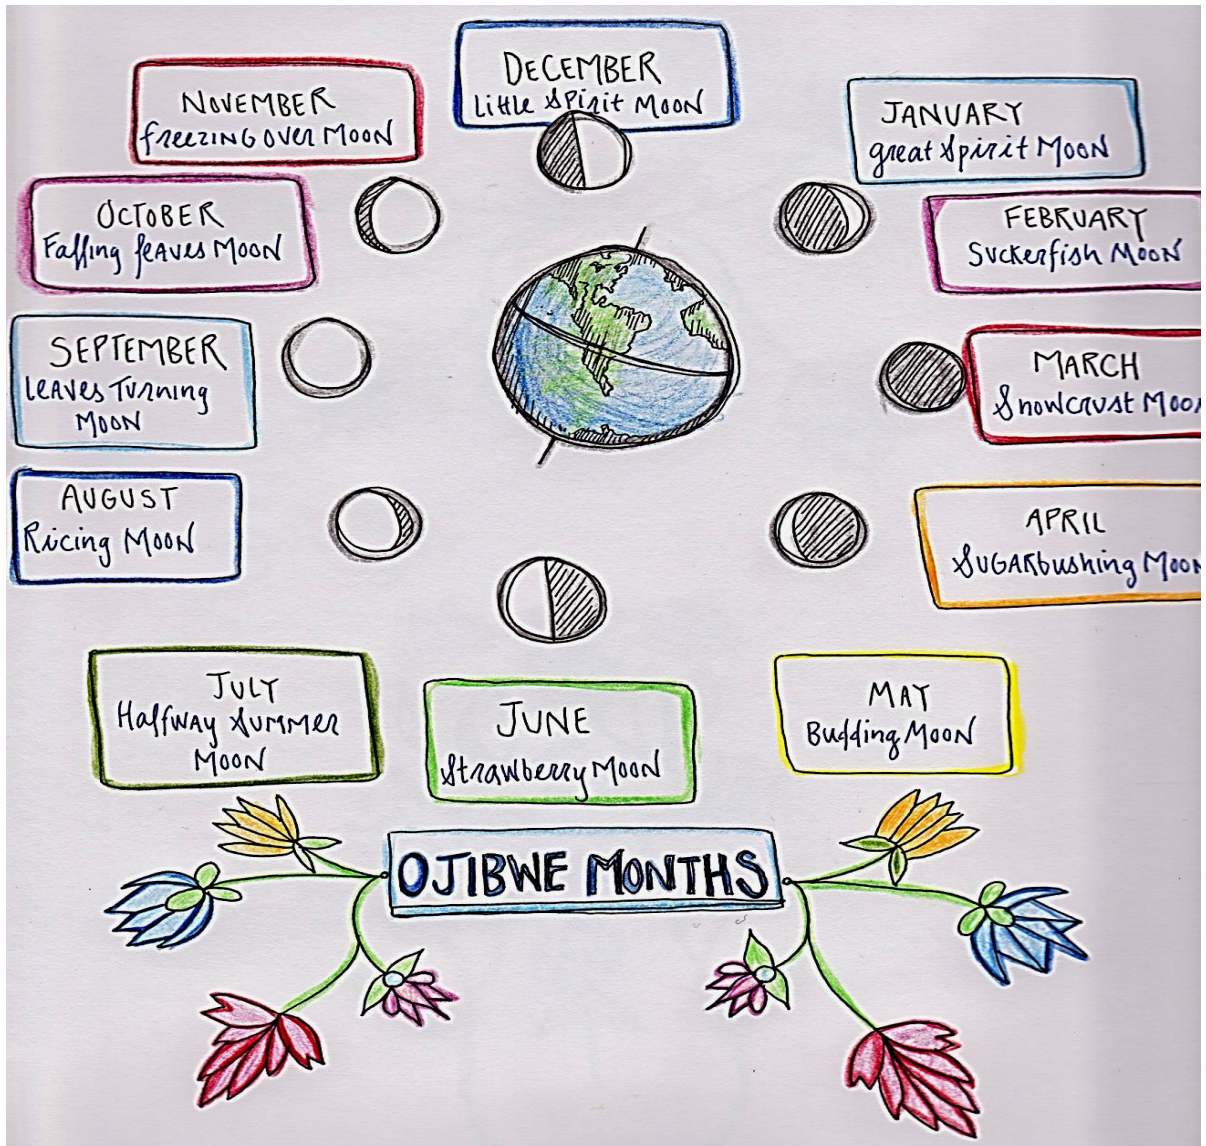 DECEMBER
Little Spirit Moon
NOVEMBER
freezing over Moon
JANUARY
great Spirit Moon
OCTOBER
Falling leaves Moon
FEBRUARY
Suckerfish Moon
SEPTEMBER
leaves Turning
Moon
MARCH
Snowcrust Moon
AUGUST
Ricing Moon
APRIL
Sugarbushing Moon
JULY
Halfway Summer
Moon
JUNE
Strawberry Moon
MAY
Budding Moon
OJIBWE MONTHS